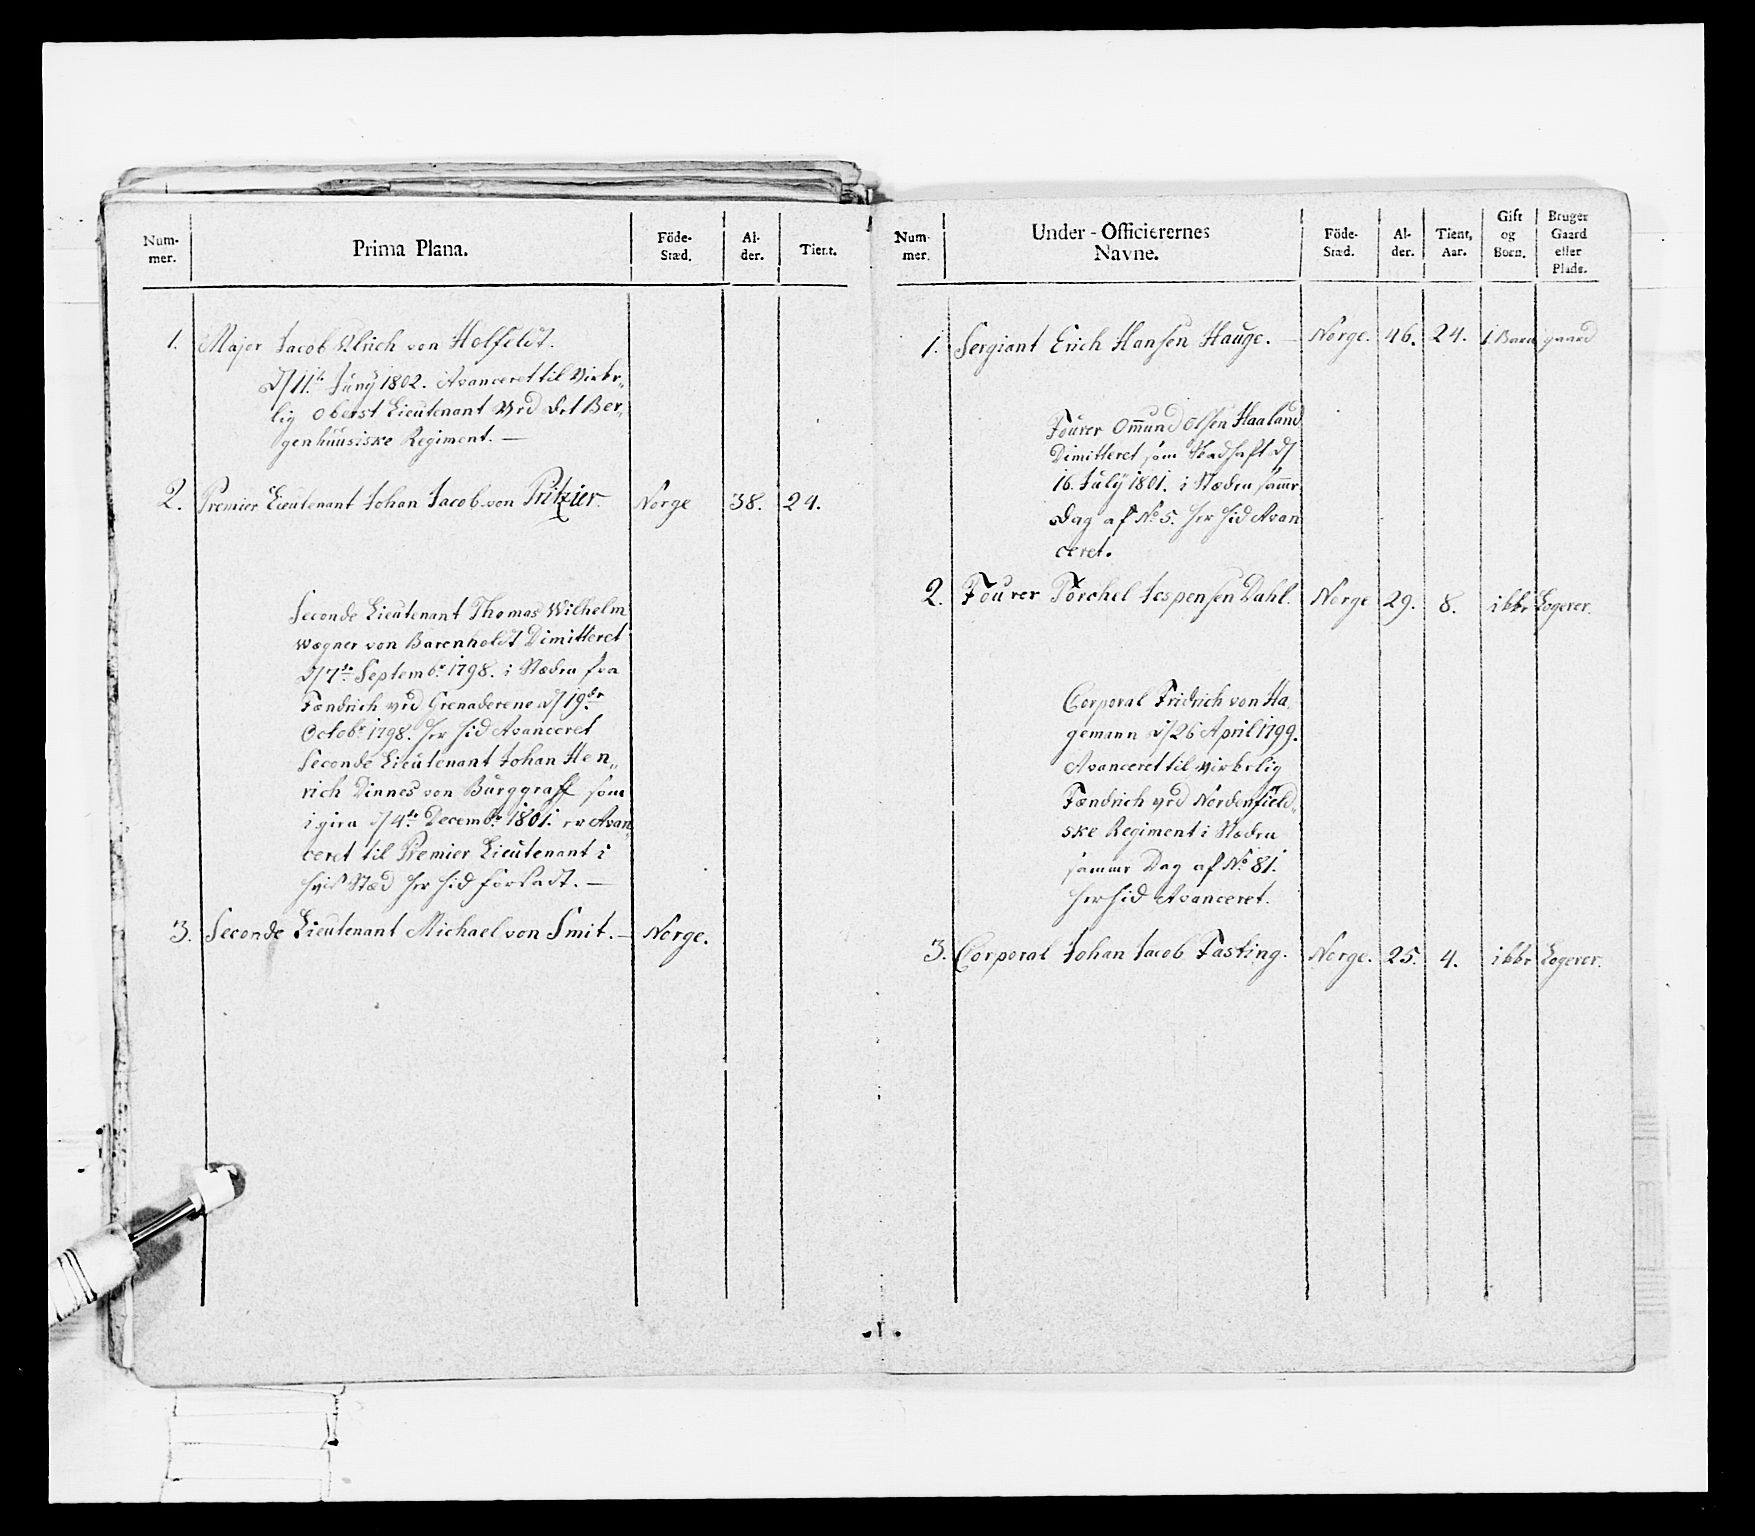 Num-
mer.
Prima Plana.
Föde-
Stæd.
Al-
der.
Tient.
1. Major Jacob Ulrich von Holfeldt.
d/ 11te Juny 1802. Avanceret til Virke„
lig Oberst Lieutenant ved det Ber„
genhuusiske Regiment. —
2. Premier Lieutenant Johan Jacob von Pritzier. Norge 38. 24.
Seconde Lieutenant Thomas Wilhelm
Wagner von Barenholdt Dimitteret
d/ 7de Septembr 1798. i Stæden fra
Fændrich ved Grenaderene d/ 19de
Octobr 1798. her hid Avanceret
Seconde Lieutenant Johan Hen„
rich Dinnes von Burggraff som
igien d/ 4de Decembr 1801. er Avan„
ceret til Premier Lieutenant i
hvis Stæd her hid forsadt. —
3. Seconde Lieutenant Michael von Smit. — Norge.
Num-
mer.
Under-Officierernes
Navne.
Föde-
Stæd.
Al-
der.
Tient,
Aar.
Gift
og
Boen.
Bruger
Gaard
eller
Plads.
1. Sergiant Erich Hansen Hauge. — Norge. 46. 24. 1 Barn gaard
Fourer Ommund Olsen Haaland
Dimitteret som d/
16. July 1801. i Stæden samme
Dag af No 5. her hid Avan
ceret.
2. Fourer Torchel Jespersen Dahl. Norge 29. 8. ikke Logerer.
Corporal Fridrich von Ha„
gemann d/ 26 April 1799.
Avanceret til Virkelig
Fændrich ved Nordenfield„
ske Regiment i Stæden
samme Dag af No 81.
her hid Avanceret.
3. Corporal Johan Jacob Fasting. Norge. 25. 4. ikke Logerer.